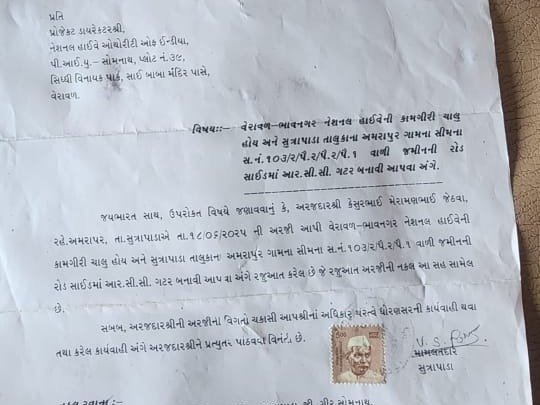 પ્રતિ
પ્રોજેક્ટ ડાયરેક્ટરશ્રી,
નેશનલ હાઈવે ઓથોરીટી ઓફ ઈન્ડીયા,
પી.આઈ.યુ.- સોમનાથ, પ્લોટ નં.૩૯,
સિધ્ધી વિનાયક પાર્ક, સાઈ બાબા મંદિર પાસે,
વેરાવળ.
વિષય::- વેરાવળ-ભાવનગર નેશનલ હાઈવેની કામગીરી ચાલુ
હોય અને સુત્રાપાડા તાલુકાના અમરાપુર ગામના સીમના
સ.નં.૧૦૩/૨/પૈ.૨/પૈ.૨/પૈ.૧ વાળી જમીનની રોડ
સાઈડમાં આર.સી.સી. ગટર બનાવી આપવા અંગે.
જયભારત સાથ, ઉપરોકત વિષયે જણાવવાનું કે, અરજદારશ્રી કેસુરભાઈ મેરામણભાઈ જેઠવા,
રહે.અમરાપર, તા.સુત્રાપાડાએ તા.૧૮/૦૬/૨૦૨૫ ની અરજી આપી વેરાવળ-ભાવનગર નેશનલ હાઈવેની
કામગીરી ચાલુ હોય અને સુત્રાપાડા તાલુકાના અમરાપુર ગામના સીમના સ.નં.૧૦૩/૨/પૈ.૨/પૈ.૧ વાળી જમીનની
રોડ સાઈડમાં આર.સી.સી. ગટર બનાવી આપવા અંગે રજુઆત કરેલ છે જે રજુઆત અરજીની નકલ આ સહ સામેલ
છે.
સબબ, અરજદારશ્રીની અરજીના વિગતો ચકાસી આપશ્રીનાં અધિકારે ધોરણસરની કાર્યવાહી થવા
તથા કરેલ કાર્યવાહી અંગે અરજદારશ્રીને પ્રત્યુતર પાઠવવા વિનંતી છે.
મામલતદાર
સુત્રાપાડા